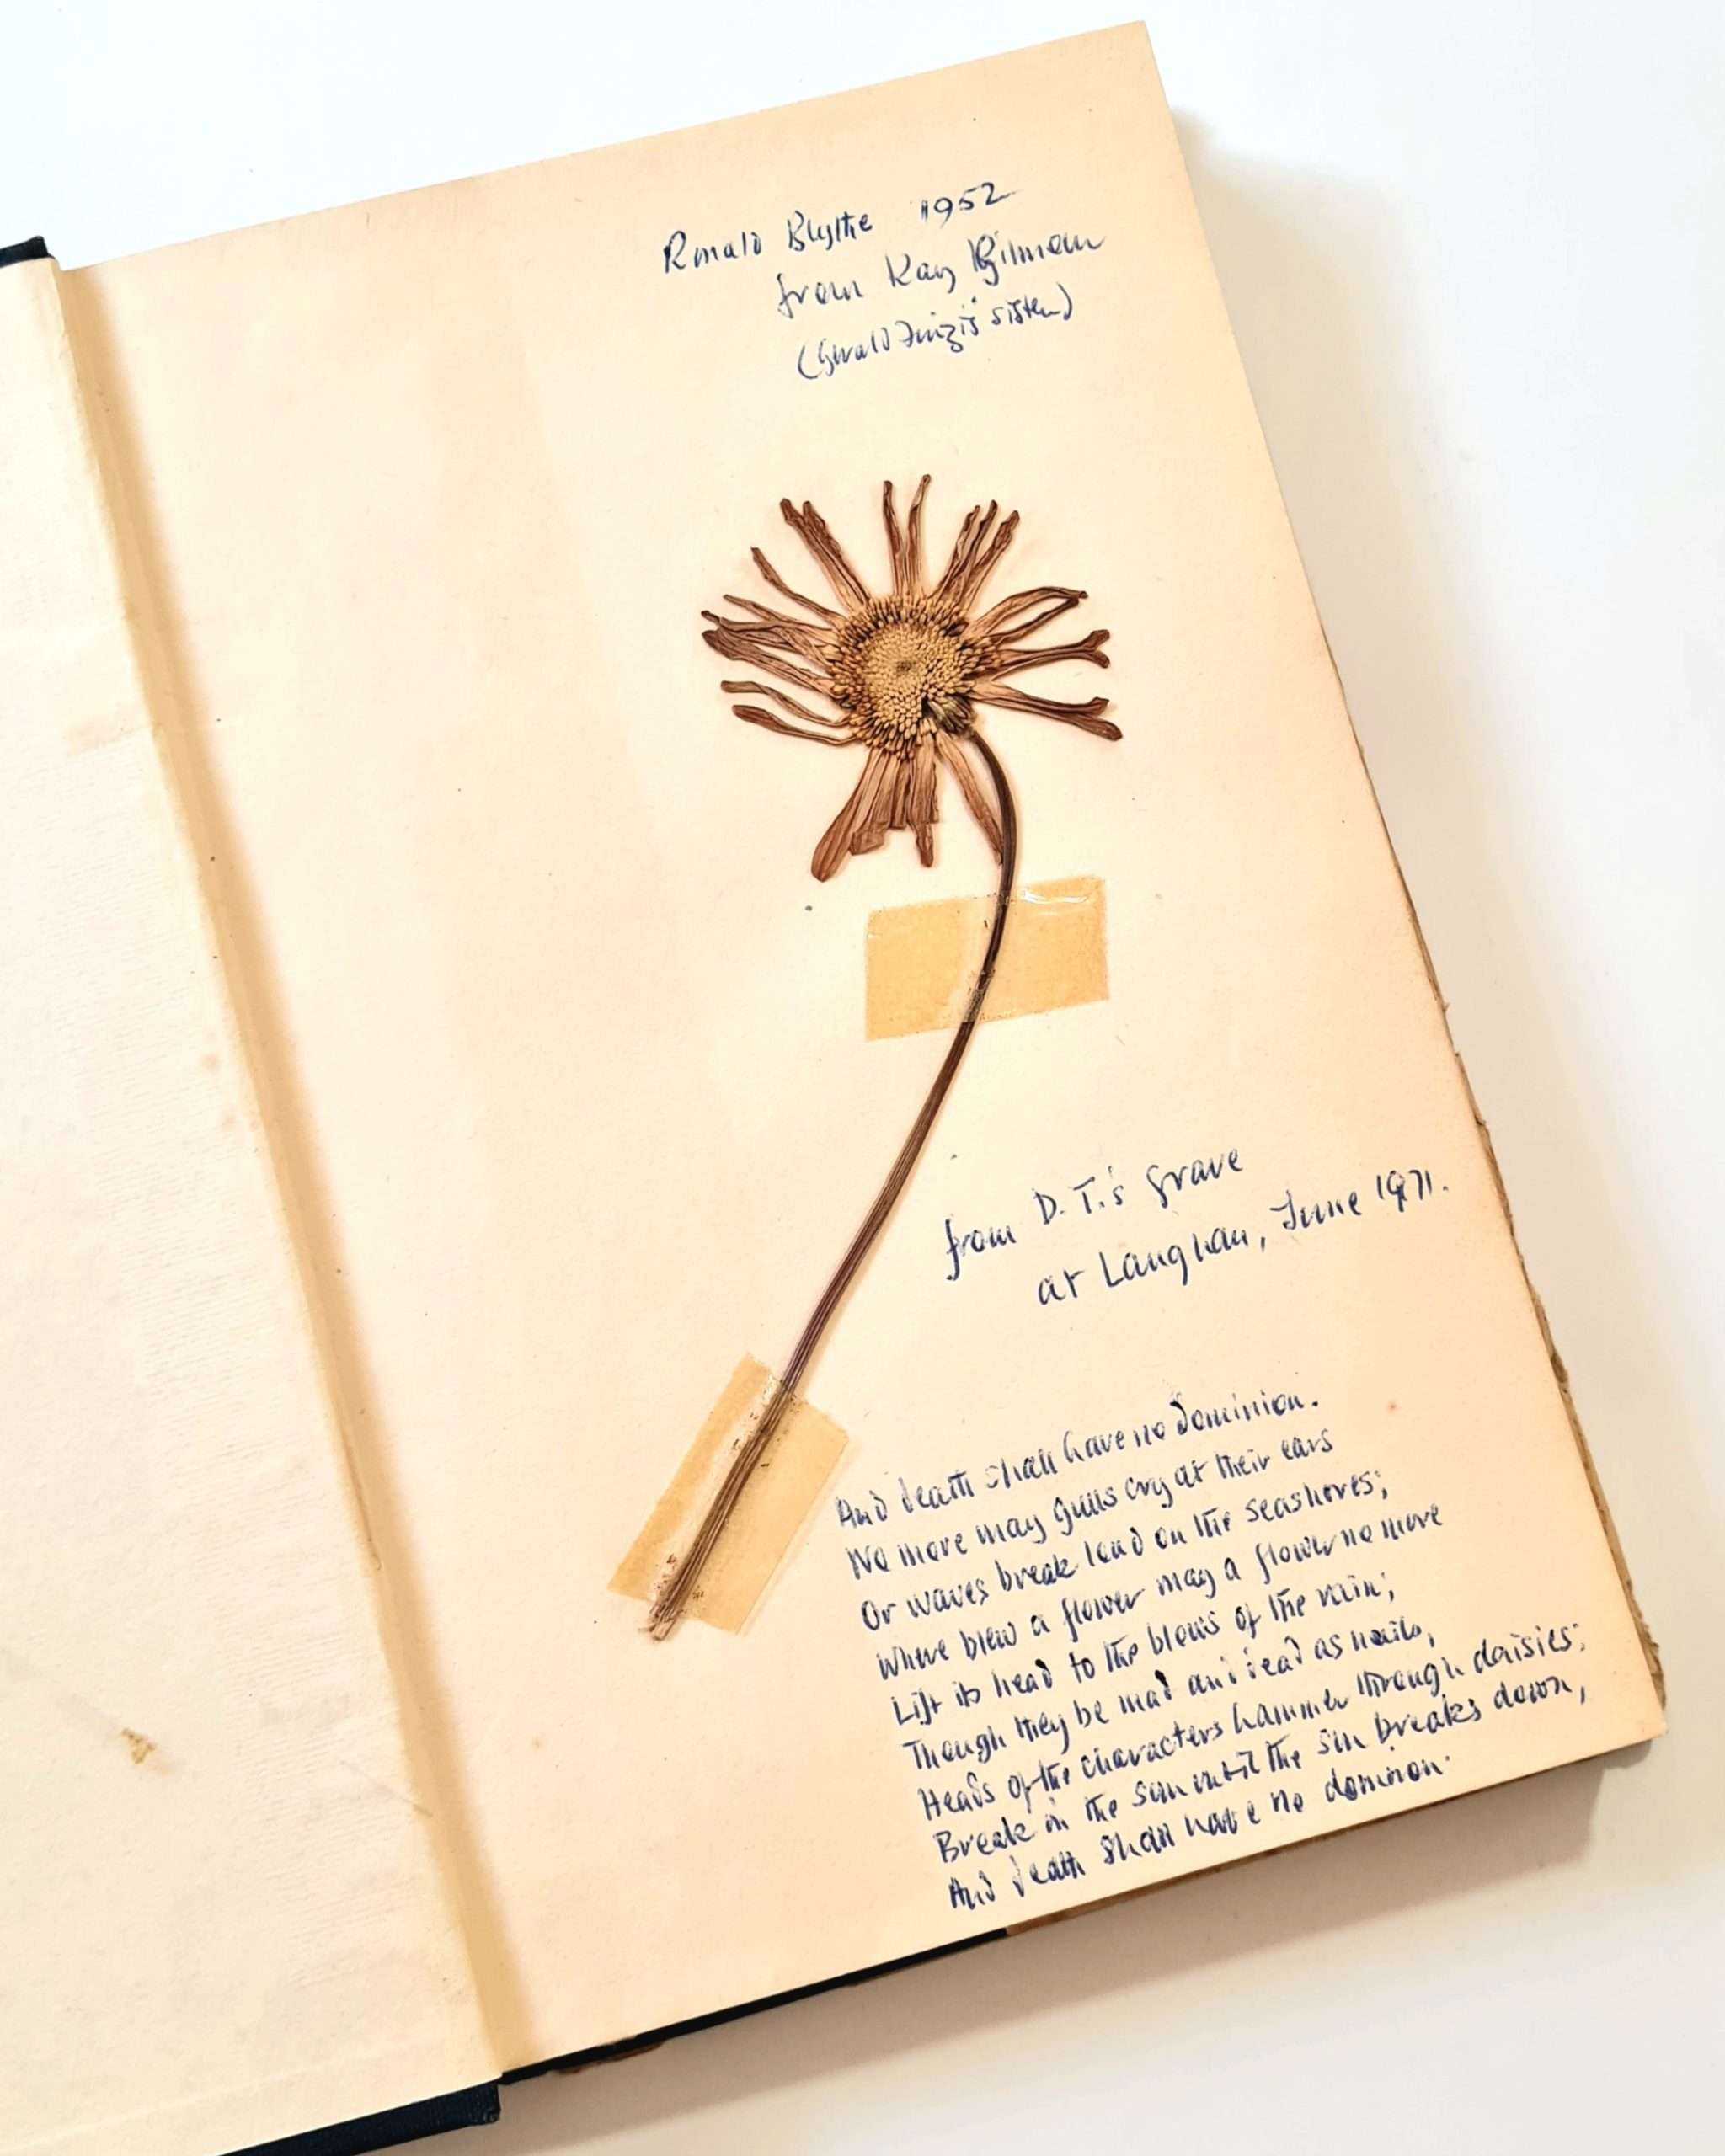 Ronald Blythe 1952
from Kay Gilmour
(Gerald Finzi's sister)
from D. T.'s grave
at Laughan, June 1971.
And death shall have no dominion.
No more may gulls cry at their ears
Or waves break loud on the seashores;
Where blew a flower may a flower no more
Lift its head to the blows of the rain;
Though they be mad and dead as nails,
Heads of the characters hammer through daisies;
Break in the sun until the sun breaks down,
And death shall have no dominion.